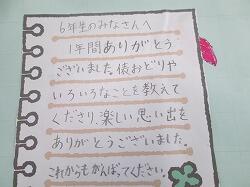 6年生のみなさんへ
1年間ありがとう
ございました。俵おどりや
いろいろなことを教えて
くださり、楽しい思い出を
ありがとうございました。
これからもがんばってください。